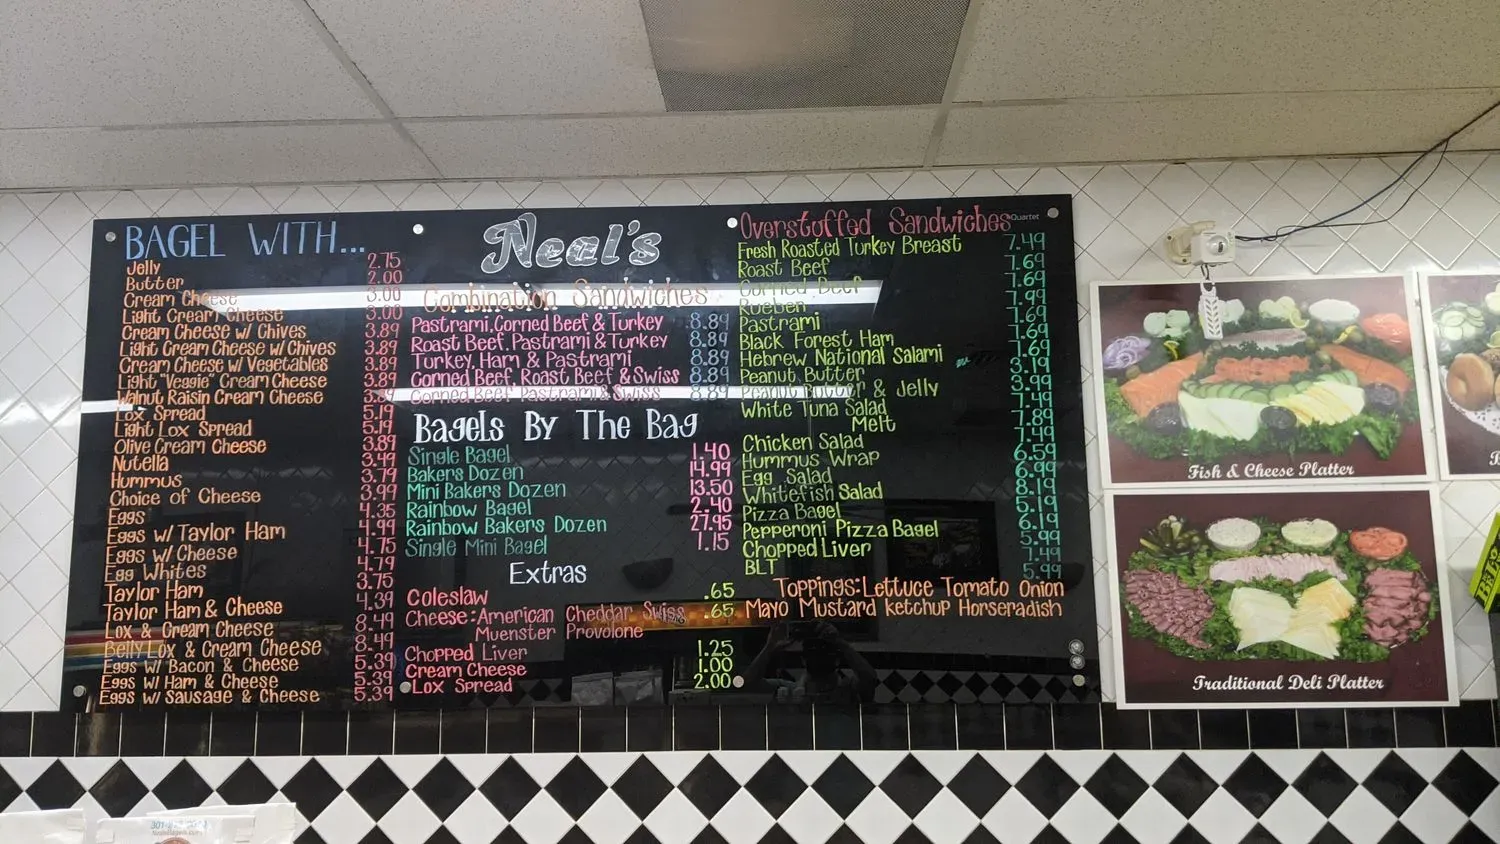 BAGEL WITH...
Jelly 2.75
Butter 2.00
Cream Cheese 3.00
Light Cream Cheese 3.00
Cream Cheese w/ Chives 3.89
Light Cream Cheese w/ Chives 3.89
Cream Cheese w/ Vegetables 3.89
Light "Veggie" Cream Cheese 3.89
Walnut Raisin Cream Cheese 3.89
Lox Spread 5.19
Light Lox Spread 5.19
Olive Cream Cheese 3.89
Nutella 3.49
Hummus 3.79
Choice of Cheese 3.99
Eggs 4.35
Eggs w/ Taylor Ham 4.99
Eggs w/ Cheese 4.75
Egg Whites 4.79
Taylor Ham 3.75
Taylor Ham & Cheese 4.39
Lox & Cream Cheese 8.49
Belly Lox & Cream Cheese 8.49
Eggs w/ Bacon & Cheese 5.39
Eggs w/ Ham & Cheese 5.39
Eggs w/ Sausage & Cheese 5.39
Neal's
Combination Sandwiches
Pastrami, Corned Beef & Turkey 8.89
Roast Beef, Pastrami & Turkey 8.89
Turkey, Ham & Pastrami 8.89
Corned Beef, Roast Beef & Swiss 8.89
Corned Beef Pastrami & Swiss 8.89
Bagels By The Bag
Single Bagel 1.40
Bakers Dozen 14.99
Mini Bakers Dozen 13.50
Rainbow Bagel 2.40
Rainbow Bakers Dozen 27.95
Single Mini Bagel 1.15
Extras
Coleslaw .65
Cheese: American Cheddar Swiss .65
Muenster Provolone
Chopped Liver 1.25
Cream Cheese 1.00
Lox Spread 2.00
Overstuffed Sandwiches
Quartet
Fresh Roasted Turkey Breast 7.49
Roast Beef 7.69
Corned Beef 7.69
Rueben 7.99
Pastrami 7.69
Black Forest Ham 7.69
Hebrew National Salami 7.69
Peanut Butter 3.19
Peanut Butter & Jelly 3.99
White Tuna Salad 7.49
Melt 7.89
Chicken Salad 7.49
Hummus Wrap 6.59
Egg Salad 6.99
Whitefish Salad 8.19
Pizza Bagel 5.19
Pepperoni Pizza Bagel 6.19
Chopped Liver 5.99
BLT 7.49
5.99
Toppings: Lettuce Tomato Onion
Mayo Mustard Ketchup Horseradish
Fish & Cheese Platter
Traditional Deli Platter